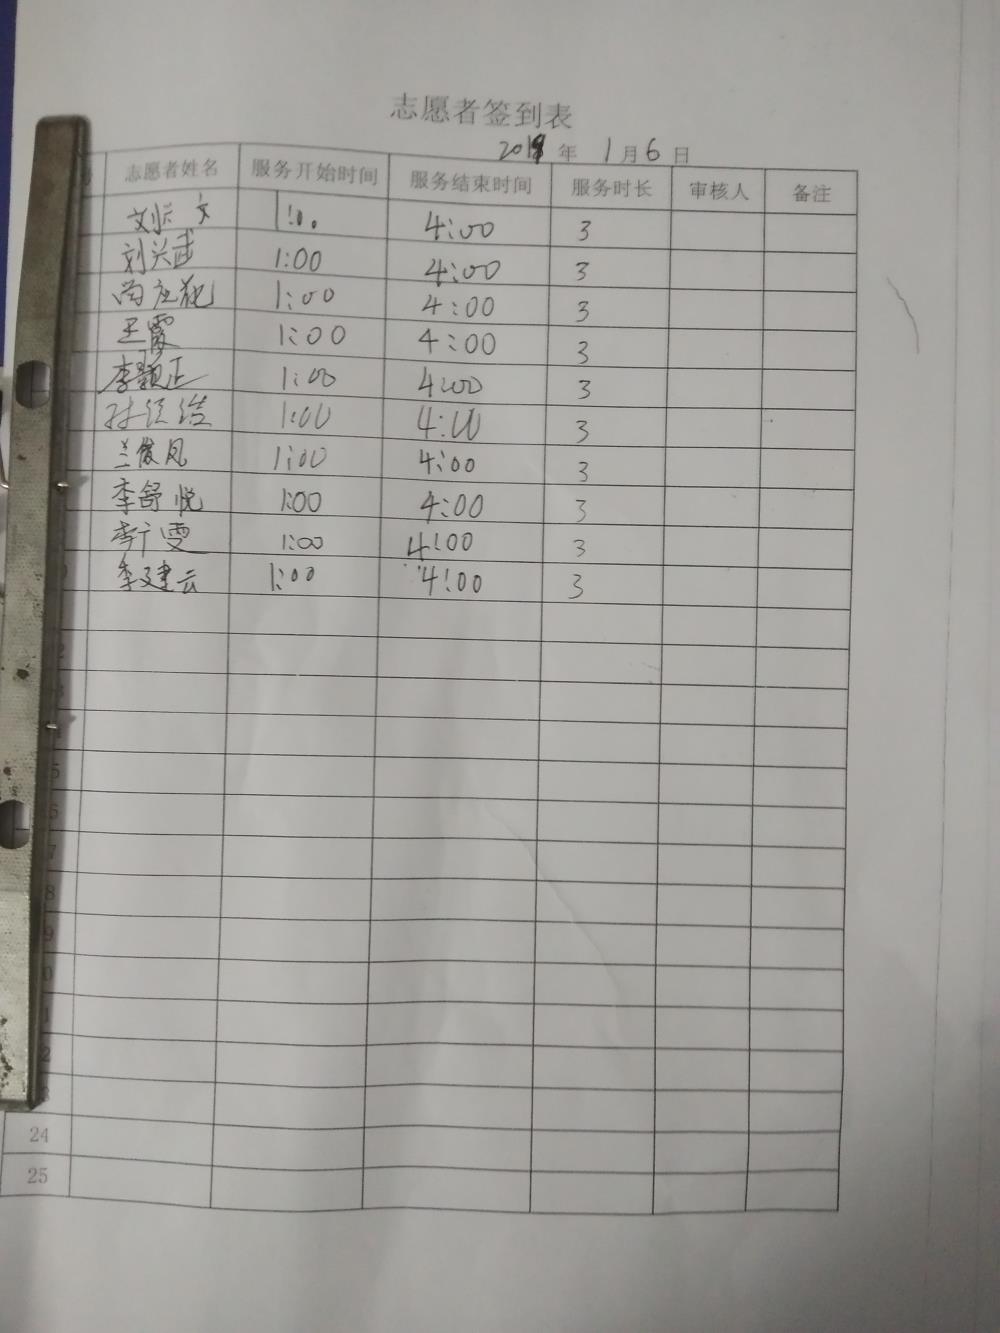 志愿者签到表
2018 年 1 月 6 日
志愿者姓名 服务开始时间 服务结束时间 服务时长 审核人 备注
1:00 4:00 3
刘兴武 1:00 4:00 3
1:00 4:00 3
王霞 1:00 4:00 3
李颖正 1:00 4:00 3
1:00 4:00 3
兰俊凤 1:00 4:00 3
李舒悦 1:00 4:00 3
1:00 4:00 3
李建云 1:00 4:00 3
24
25